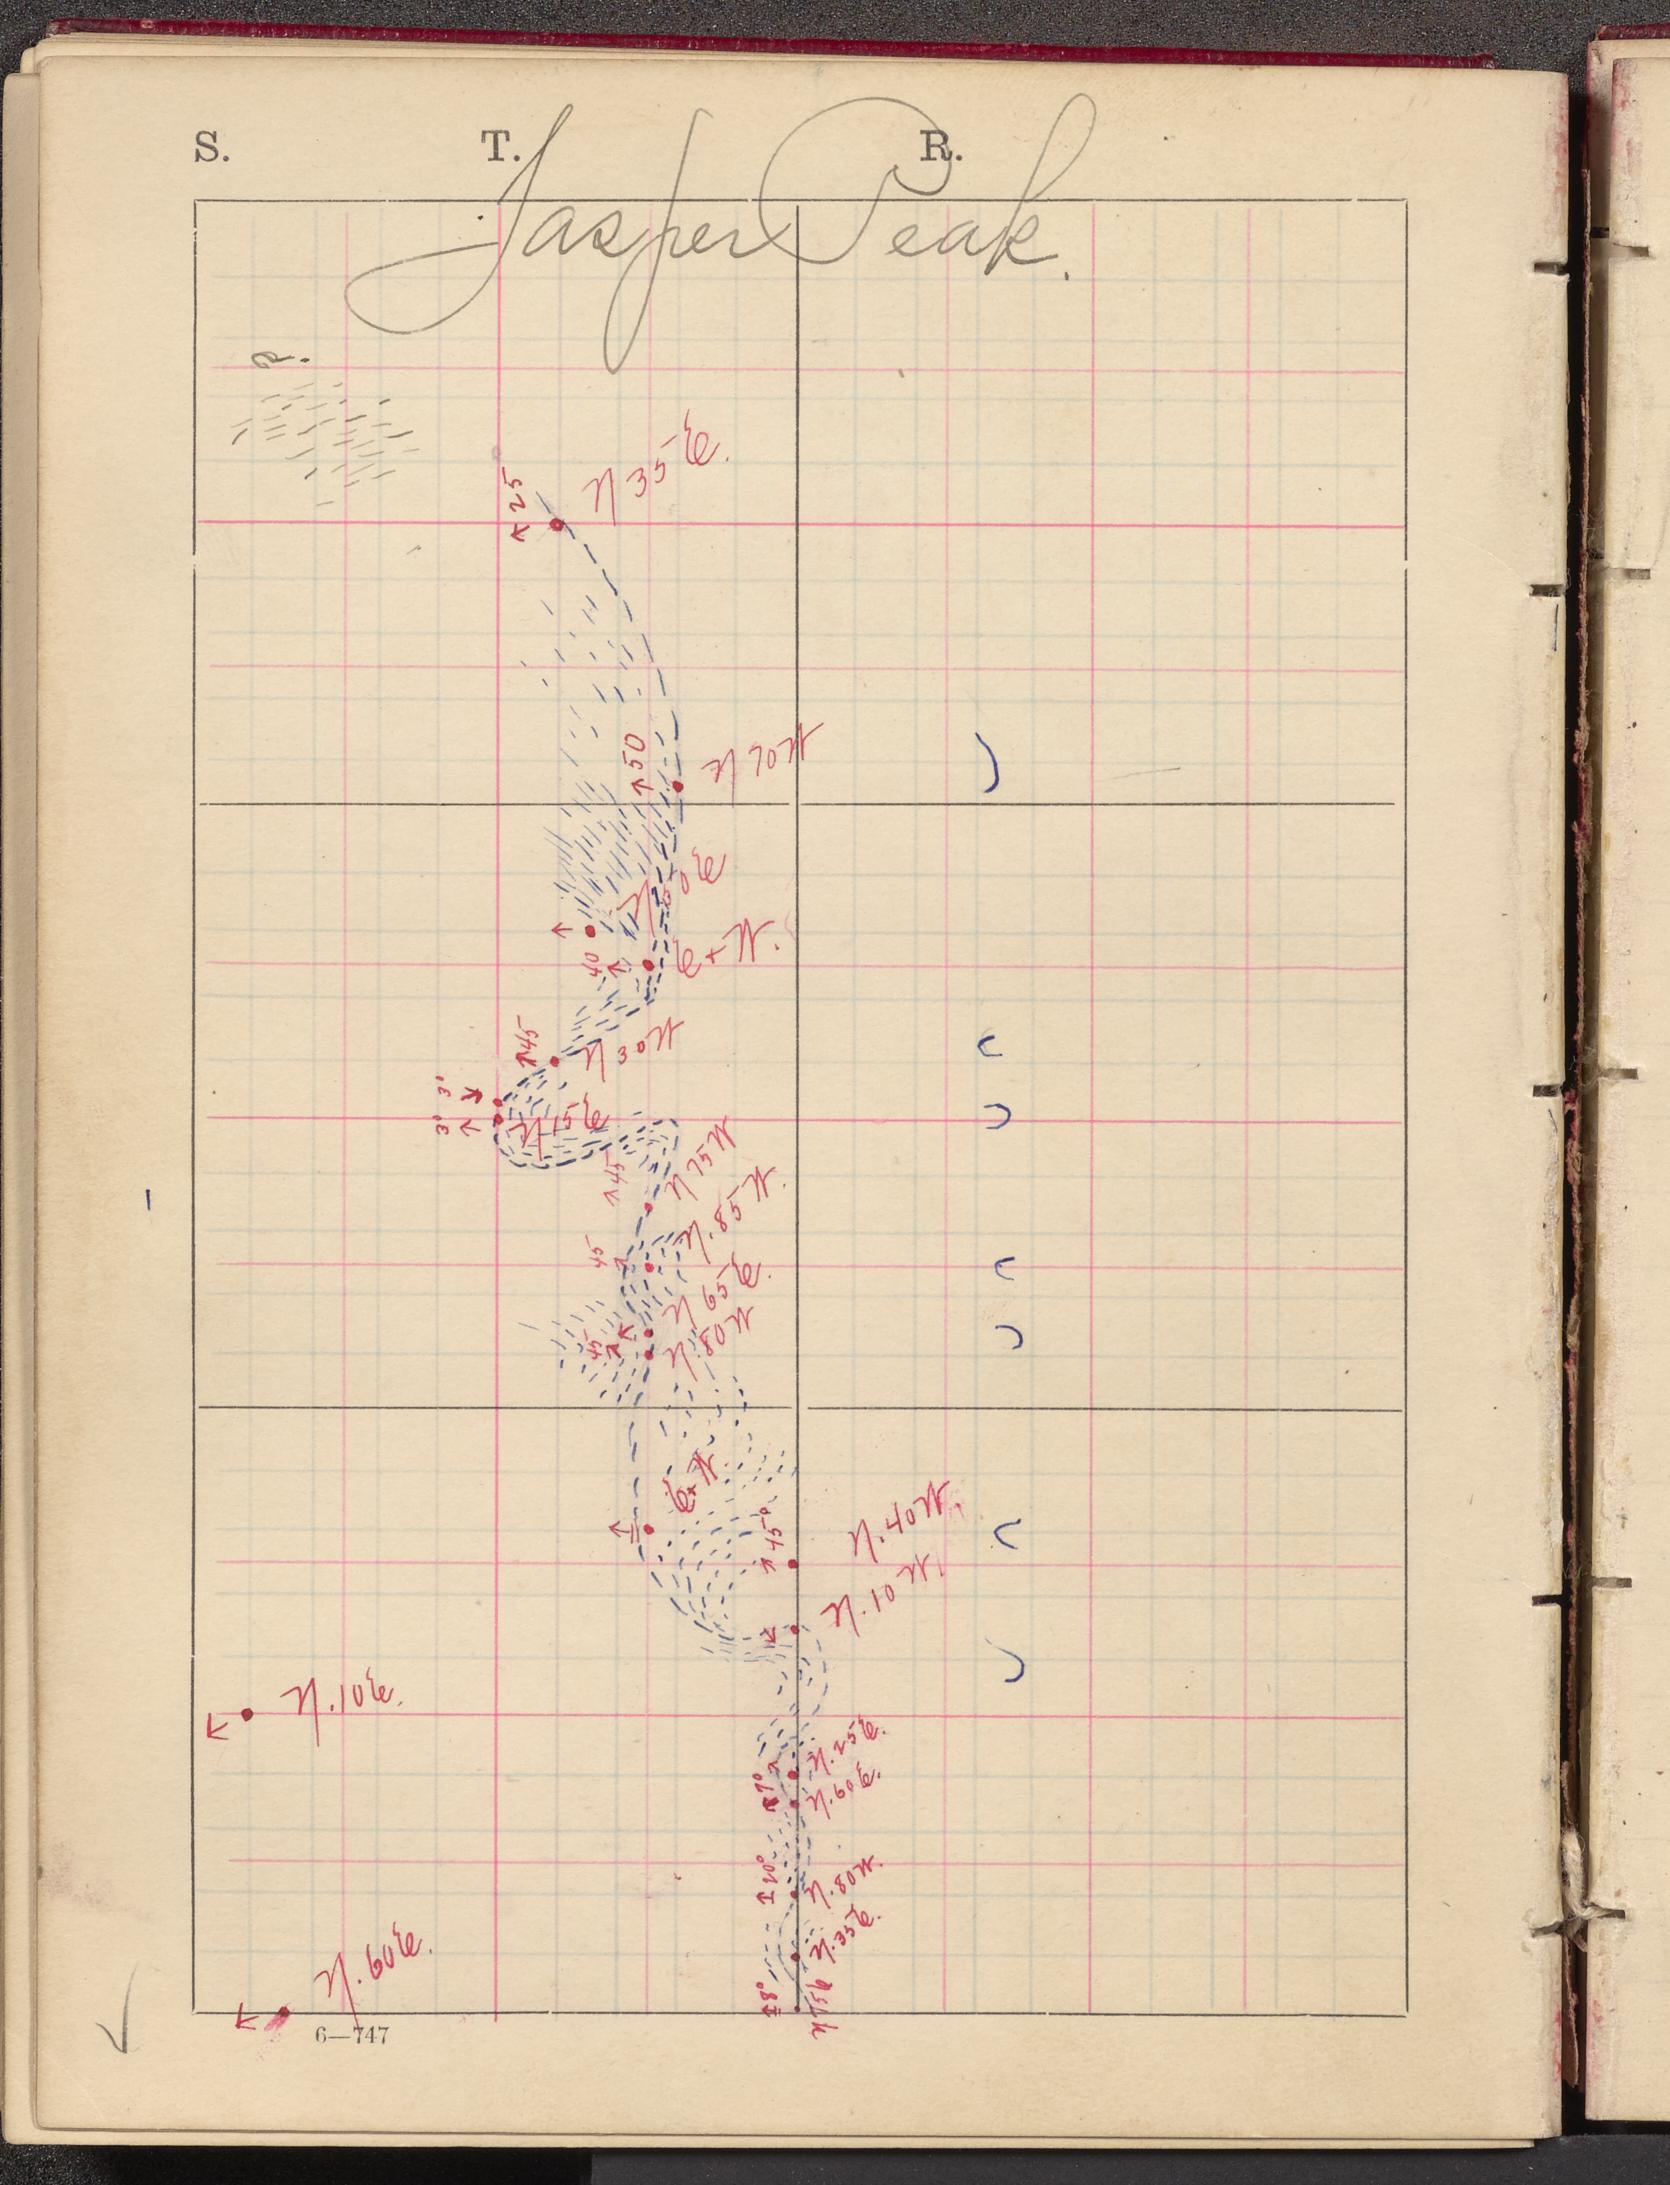 S. T. R.
Jasper Peak.
N 35 E.
25
50
N 70 W
N 50 E
40
E + W.
45
N 30 W
3°
3°
N 15 E
45
N 75 W
N. 85 W.
45
N 65 E.
N. 80 W
45
E + W
N. 40 W.
45°
N. 10 W.
N. 10 E.
N. 25 E.
N. 60 E.
70
20°
N. 80 W.
N. 35 E.
N. 60 E.
8°
6—747